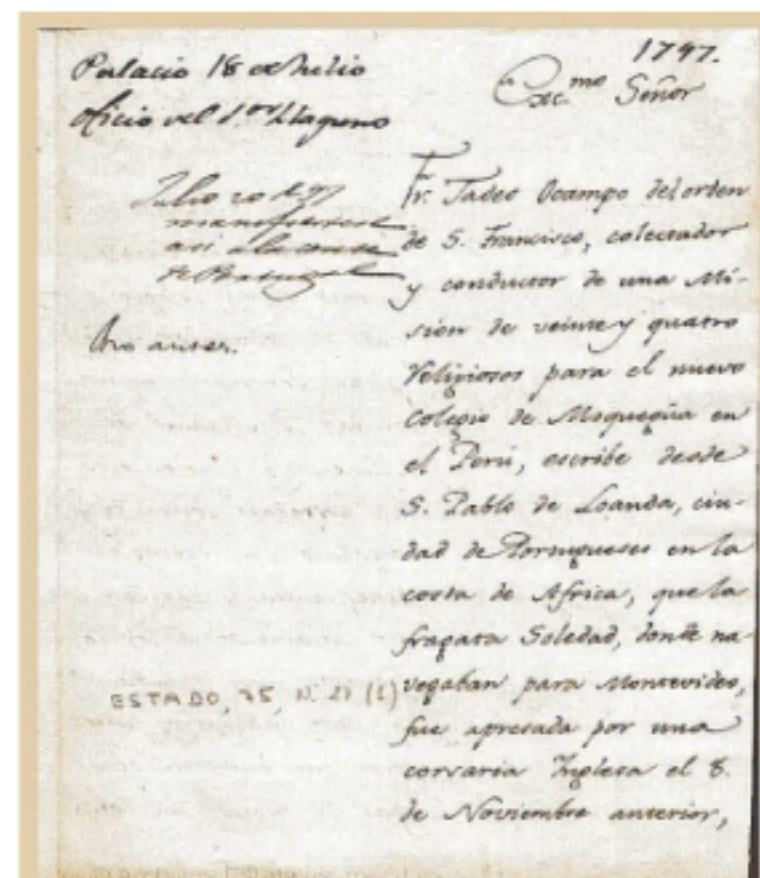 1797.
Palacio 18 de Julio
oficio del S.or Llaguno
Exc.mo Señor
Julio 20 de 97
asi
de Portugal
Fr. Tadeo Ocampo del orden
de S. Francisco, colectador
y conductor de una Mi-
sion de veinte y quatro
Religiosos para el nuevo
Colegio de Moquegûa en
el Perú, escribe desde
S. Pablo de Loanda, ciu-
dad de Portugueses en la
costa de Africa, que la
fragata Soledad, donde na-
vegaban para Montevideo,
fue apresada por una
corsaria Inglesa el 8.
de Noviembre anterior,
ESTADO, 75, N. 21 (1)